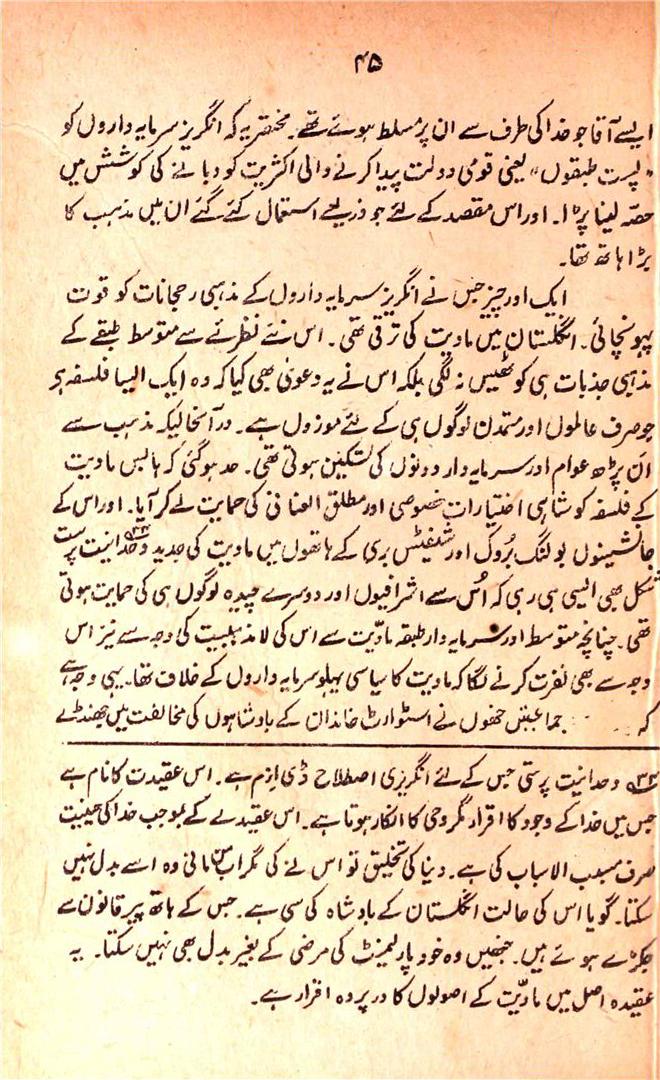 ۴۵
ایسے آقا جو خدا کی طرف سے ان پر مسلط ہوئے تھے۔ مختصر یہ کہ انگریز سرمایہ داروں کو
"پست طبقوں" یعنی قومی دولت پیدا کرنے والی اکثریت کو دبانے کی کوشش میں
حصّہ لینا پڑا۔ اور اس مقصد کے لئے جو ذریعے استعمال کئے گئے ان میں مذہب کا
بڑا ہاتھ تھا۔
ایک اور چیز جس نے انگریز سرمایہ داروں کے مذہبی رحجانات کو قوت
پہونچائی۔ انگلستان میں مادیت کی ترقی تھی۔ اس نئے نظرئے سے متوسط طبقے کے
مذہبی جذبات ہی کو ٹھیس نہ لگی بلکہ اس نے یہ دعویٰ بھی کیا کہ وہ ایک ایسا فلسفہ ہے
جو صرف عالموں اور متمدن لوگوں ہی کے لئے موزوں ہے۔ درآنحالیکہ مذہب سے
ان پڑھ عوام اور سرمایہ دار دونوں کی تسکین ہوتی تھی۔ حد ہوگئی کہ ہابس مادیت
کے فلسفہ کو شاہی اختیارات خصوصی اور مطلق العنانی کی حمایت لے کر آیا۔ اور اس کے
جانشینوں بولنگ بروک اور شفٹس بری کے ہاتھوں میں مادیت کی جدید وحدانیت پرست
شکل بھی ایسی ہی رہی کہ اُس سے اشرافیوں اور دوسرے چیدہ لوگوں ہی کی حمایت ہوتی
تھی۔ چنانچہ متوسط اور سرمایہ دار طبقہ مادّیت سے اس کی لامذہبیت کی وجہ سے نیز اس
وجہ سے بھی نفرت کرنے لگا کہ مادیت کا سیاسی پہلو سرمایہ داروں کے خلاف تھا۔ یہی وجہ ہے
کہ جماعتیں جنھوں نے اسٹوارٹ خاندان کے بادشاہوں کی مخالفت میں جھنڈے
وحدانیت پرستی جس کے لئے انگریزی اصطلاح ڈی ازم ہے۔ اس عقیدت کا نام ہے
جس میں خدا کے وجود کا اقرار مگر وحی کا انکار ہوتا ہے۔ اس عقیدے کے بموجب خدا کی حیثیت
صرف مسبب الاسباب کی ہے۔ دنیا کی تخلیق تو اس نے کی مگر اب من مانی وہ اسے بدل نہیں
سکتا۔ گویا اس کی حالت انگلستان کے بادشاہ کی سی ہے۔ جس کے ہاتھ پیر قانون سے
جکڑے ہوئے ہیں۔ جنھیں وہ خود پارلیمنٹ کی مرضی کے بغیر بدل بھی نہیں سکتا۔ یہ
عقیدہ اصل میں مادّیت کے اصولوں کا درپردہ اقرار ہے۔